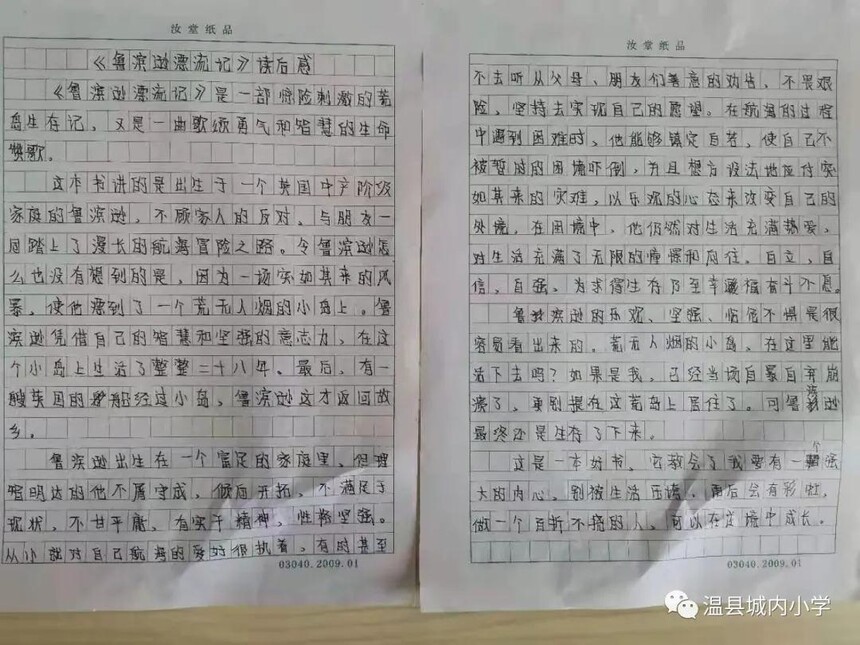 汝堂纸品
《鲁滨逊漂流记》读后感
《鲁滨逊漂流记》是一部惊险刺激的荒
岛生存记，又是一曲歌颂勇气和智慧的生命
赞歌。
这本书讲的是出生于一个英国中产阶级
家庭的鲁滨逊，不顾家人的反对，与朋友一
同踏上了漫长的航海冒险之路。令鲁滨逊怎
么也没有想到的是，因为一场突如其来的风
暴，使他漂到了一个荒无人烟的小岛上。鲁
滨逊凭借自己的智慧和坚强的意志力，在这
个小岛上生活了整整二十八年。最后，有一
艘英国的船经过小岛，鲁滨逊这才返回故
乡。
鲁滨逊出生在一个富足的家庭里，但理
智明达的他不屑守成，倾心开拓，不满足于
现状，不甘平庸，有实干精神，性格坚强。
从小就对自己航海的爱好很执着，有时甚至
03040.2009.01
汝堂纸品
不去听从父母、朋友们善意的劝告，不畏艰
险，坚持去实现自己的愿望。在航海的过程
中遇到困难时，他能够镇定自若，使自己不
被暂时的困境吓倒，并且想方设法地应付突
如其来的灾难，以乐观的心态来改变自己的
处境。在困境中，他仍然对生活充满热爱，
对生活充满了无限的憧憬和向往。自立，自
信，自强，为求得生存乃至幸福奋斗不息。
鲁滨逊的乐观、坚强、临危不惧是很
容易看出来的。荒无人烟的小岛，在这里能
活下去吗？如果是我，已经当场自暴自弃崩
溃了，更别提在这荒岛上居住了。可鲁滨逊
最终还是生存了下来。
这是一本好书，它教会了我要有一个强
大的内心，别被生活压垮，雨后会有彩虹，
做一个百折不挠的人，可以在逆境中成长。
03040.2009.01
温县城内小学